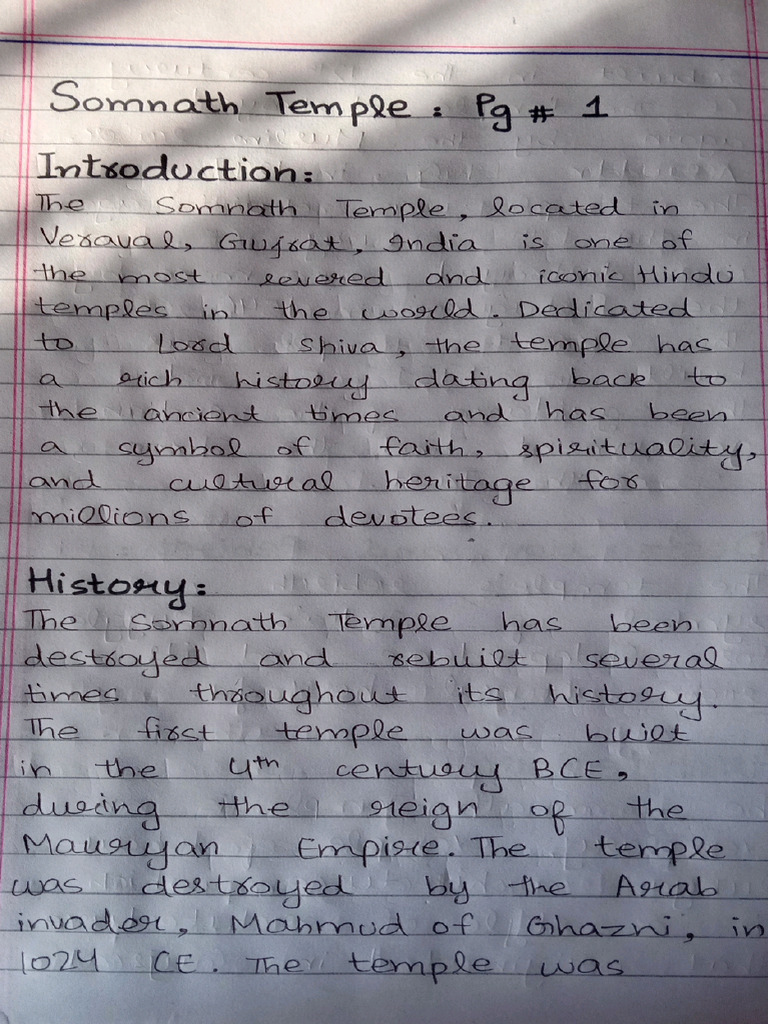 Somnath Temple : Pg # 1
Introduction:
The Somnath Temple, located in
Veraval, Gujrat, India is one of
the most revered and iconic Hindu
temples in the world. Dedicated
to Lord Shiva, the temple has
a rich history dating back to
the ancient times and has been
a symbol of faith, spirituality,
and cultural heritage for
millions of devotees.
History:
The Somnath Temple has been
destroyed and rebuilt several
times throughout its history.
The first temple was built
in the 4th century BCE,
during the reign of the
Mauryan Empire. The temple
was destroyed by the Arab
invador, Mahmud of Ghazni, in
1024 CE. The temple was